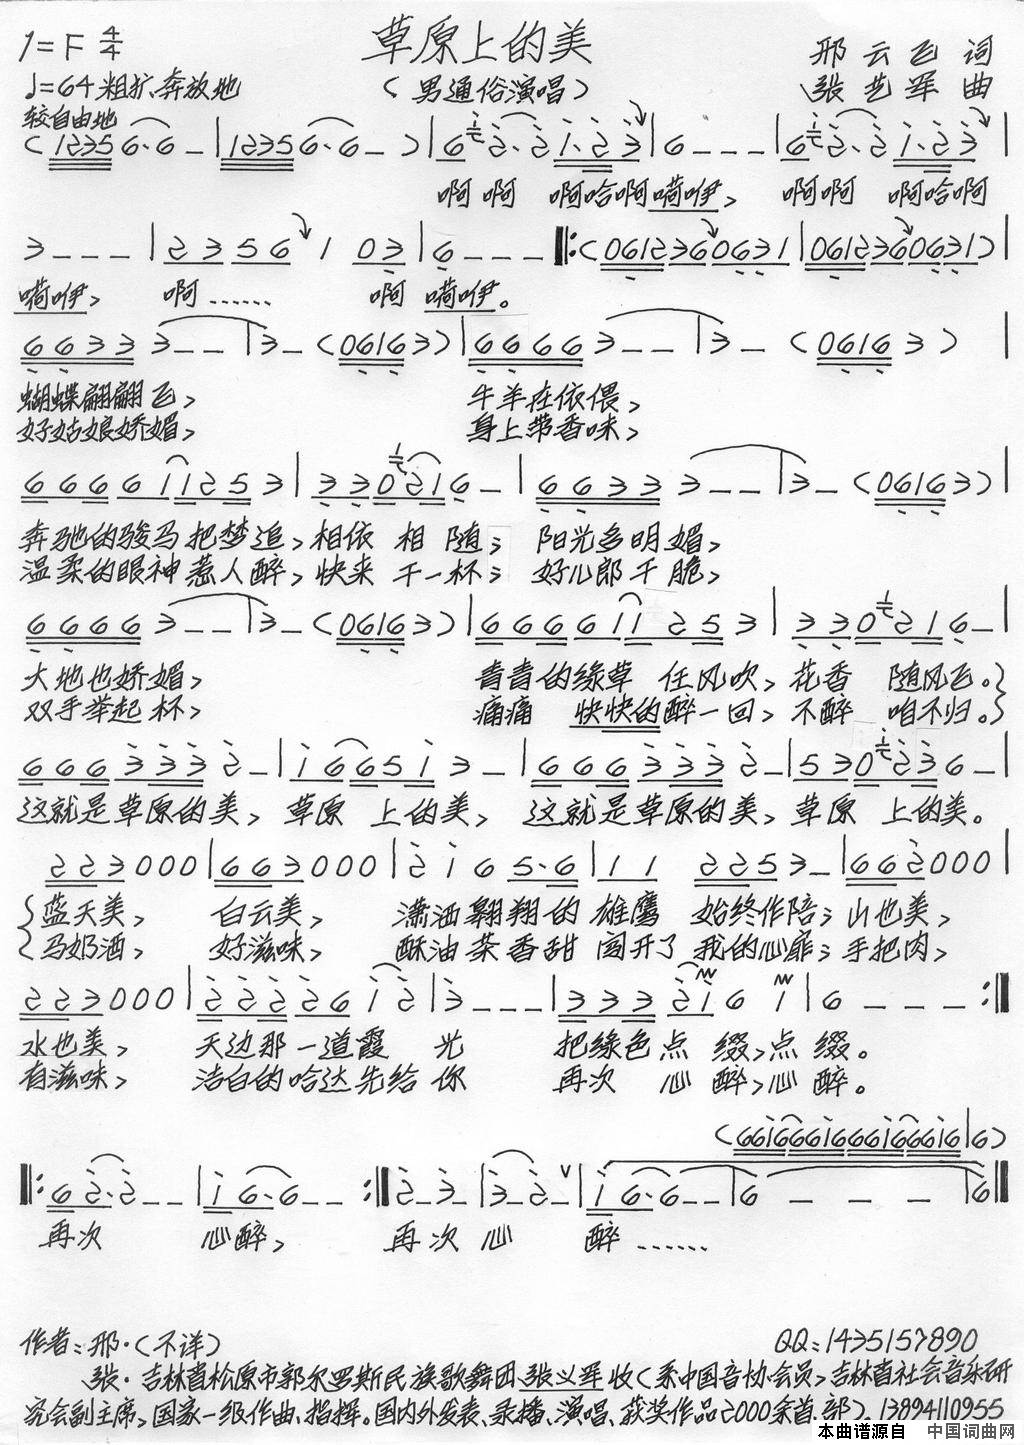 草原上的美
1=F 4/4
邢云飞 词
♩=64 粗犷、奔放地
(男通俗演唱)
张艺军 曲
较自由地
(1235 6·6 — | 1235 6·6 — ) | 6 2·2 1·2 3 | 6 — — — | 6 2·2 1·2 3 |
啊啊 啊哈啊嗬咿, 啊啊 啊哈啊
3 — — — | 2 3 5 6 1 03 | 6 — — — ‖: (061236 0631 | 061236 0631) |
嗬咿, 啊…… 啊 嗬咿。
6 6 3 3 3 — — | 3 — (0616 3) | 6 6 6 6 3 — — | 3 — (0616 3) |
蝴蝶翩翩飞, 牛羊在依偎,
好姑娘娇媚, 身上带香味,
6 6 6 6 1 1 2 5 3 | 3 3 0 2 1 6 — | 6 6 3 3 3 — — | 3 — (0616 3) |
奔驰的骏马把梦追,相依 相 随; 阳光多明媚,
温柔的眼神惹人醉,快来 干一杯; 好儿郎干脆,
6 6 6 6 3 — — | 3 — (0616 3) | 6 6 6 6 1 1 2 5 3 | 3 3 0 2 1 6 — |
大地也娇媚, 青青的缘草 任风吹,花香 随风飞。
双手举起杯, 痛痛 快快的醉一回,不醉 咱不归。
6 6 6 3 3 3 2 — | 1 6 6 5 1 3 — | 6 6 6 3 3 3 2 — | 5 3 0 2 3 6 — |
这就是草原的美,草原 上的美, 这就是草原的美,草原 上的美。
2 2 3 0 0 0 | 6 6 3 0 0 0 | 2 1 6 5·6 | 1 1 2 2 5 3 — | 6 6 2 0 0 0 |
蓝天美, 白云美, 潇洒翱翔的 雄鹰 始终作陪;山也美,
马奶酒, 好滋味, 酥油茶香甜 闯开了 我的心扉;手把肉,
2 2 3 0 0 0 | 2 2 2 2 6 1 2 | 3 — — — | 3 3 3 2 1 6 1 | 6 — — — :‖
水也美, 天边那一道霞 光 把缘色点 缀,点 缀。
有滋味, 洁白的哈达先给 你 再次 心 醉,心 醉。
(6616 6616 6616 6616 | 6)
‖: 6 2·2 — — | 1 6·6 — — :‖ 2 — 3 — | 3 — 2 — | 1 6·6 — — | 6 — — — | 6 ‖
再次 心醉, 再次 心 醉……
作者:邢·(不详) QQ:1435157890
张·吉林省松原市郭尔罗斯民族歌舞团张义军收(系中国音协会员,吉林省社会音乐研
究会副主席,国家一级作曲、指挥。国内外发表、录播、演唱、获奖作品2000余首、部)。13894110955
本曲谱源自 中国词曲网